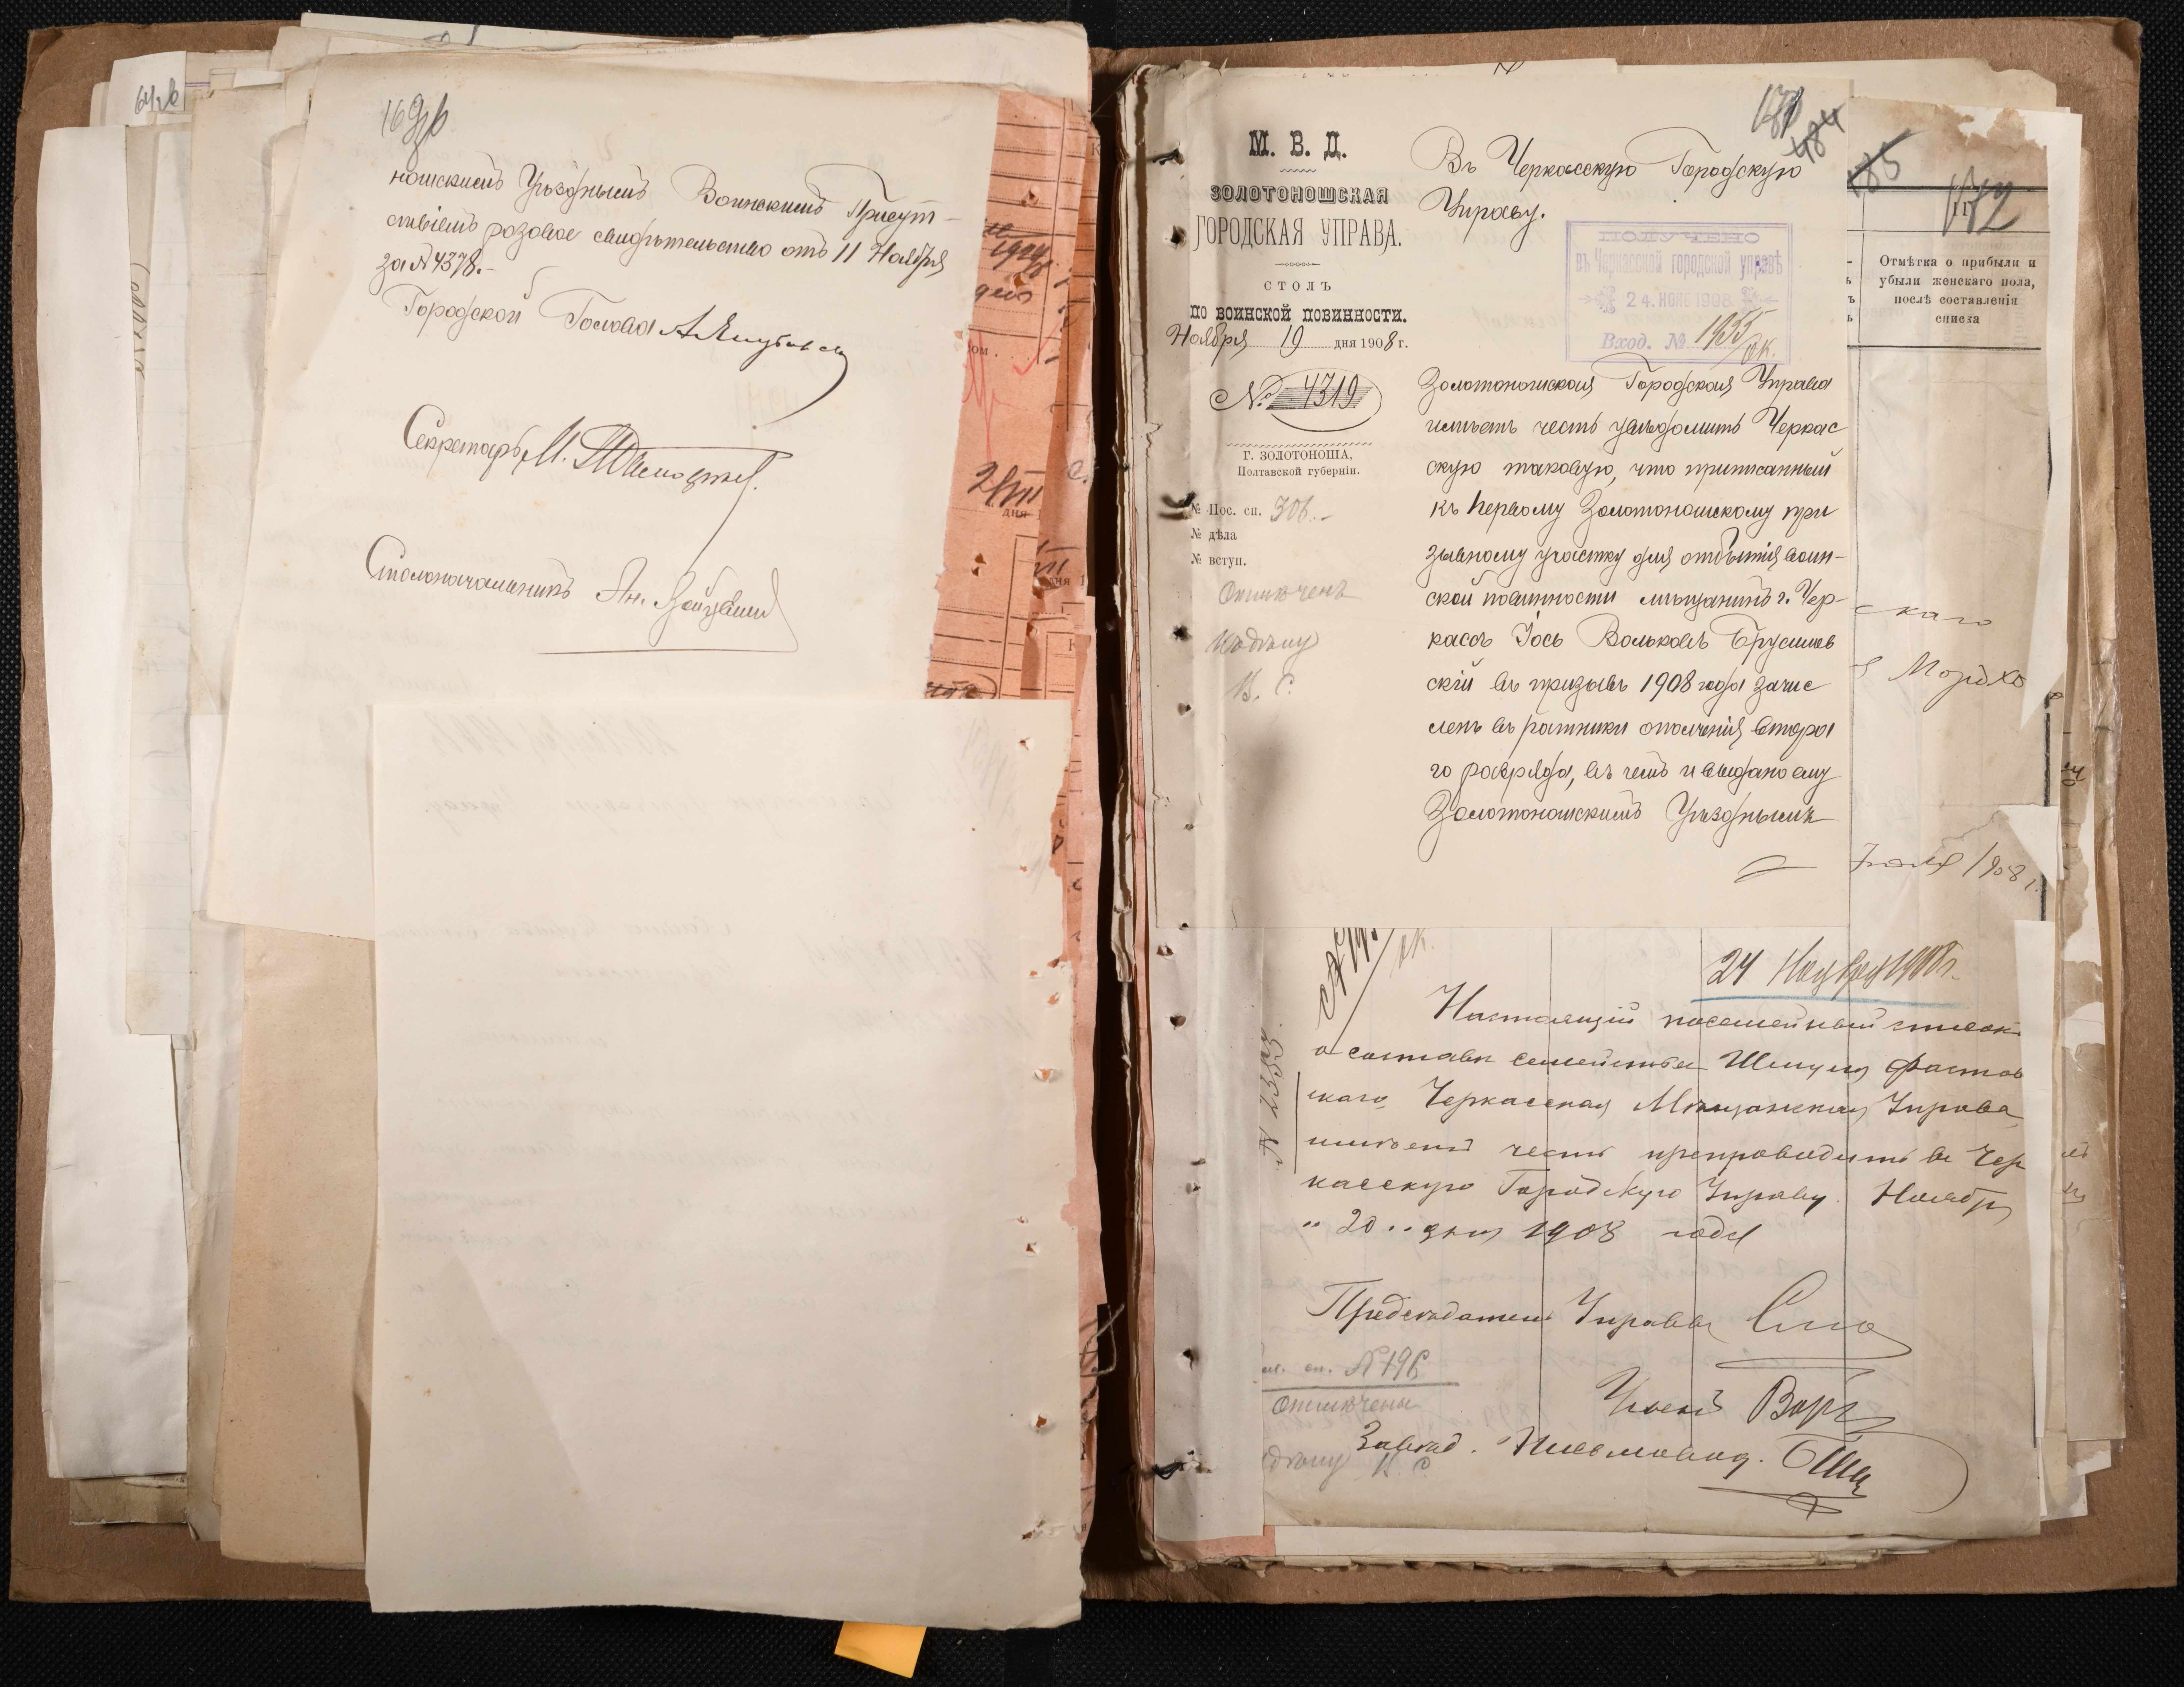 169об
ношскимъ Уѣзднымъ Воинскимъ Присут-
ствіемъ розовое свидѣтельство отъ 11 Ноября
за № 4378.-
Городской Голова
Секретарь М.
Столоначальникъ Ян.
М. В. Д.
ЗОЛОТОНОШСКАЯ
ГОРОДСКАЯ УПРАВА.
СТОЛЪ
ПО ВОИНСКОЙ ПОВИННОСТИ.
Ноября 19 дня 1908 г.
№ 4319
Г. ЗОЛОТОНОША,
Полтавской губерніи.
№ Пос. сп. 306.-
№ дѣла
№ вступ.
Отмѣченъ
К. С.
184
Въ Черкасскую Городскую
Управу.
ПОЛУЧЕНО
въ Черкасской городской управѣ
24. НОЯБ 1908
Вход. № 1955
Золотоношская Городская Управа
имѣетъ честь увѣдомить Черкас
скую таковую, что приписанный
къ первому Золотоношскому при
зывному участку для отбытія воин-
ской повинности мѣщанинъ г. Чер-
кассъ Іось Вольковъ Брусилов
скій въ призывъ 1908 года зачис
ленъ въ ратники ополченія второ
го разряда, въ чемъ и выдано ему
Золотоношскимъ Уѣзднымъ
185
172
Отмѣтка о прибыли и
убыли женскаго пола,
послѣ составленія
списка
скаго
Мордхо
1908 г.
24 Ноября 1908 г.
№ 2353
Настоящій посемейный список
о составѣ семейства Шмуля Фастов
скаго Черкасская Мѣщанская Управа
имѣетъ честь препроводить въ Чер
касскую Городскую Управу. Ноября
„ 20 „ дня 1908 года
Предсѣдатель Управы
Членъ
Завѣд. Письмовод.
сп. № 196
Отмѣчены
К. С.